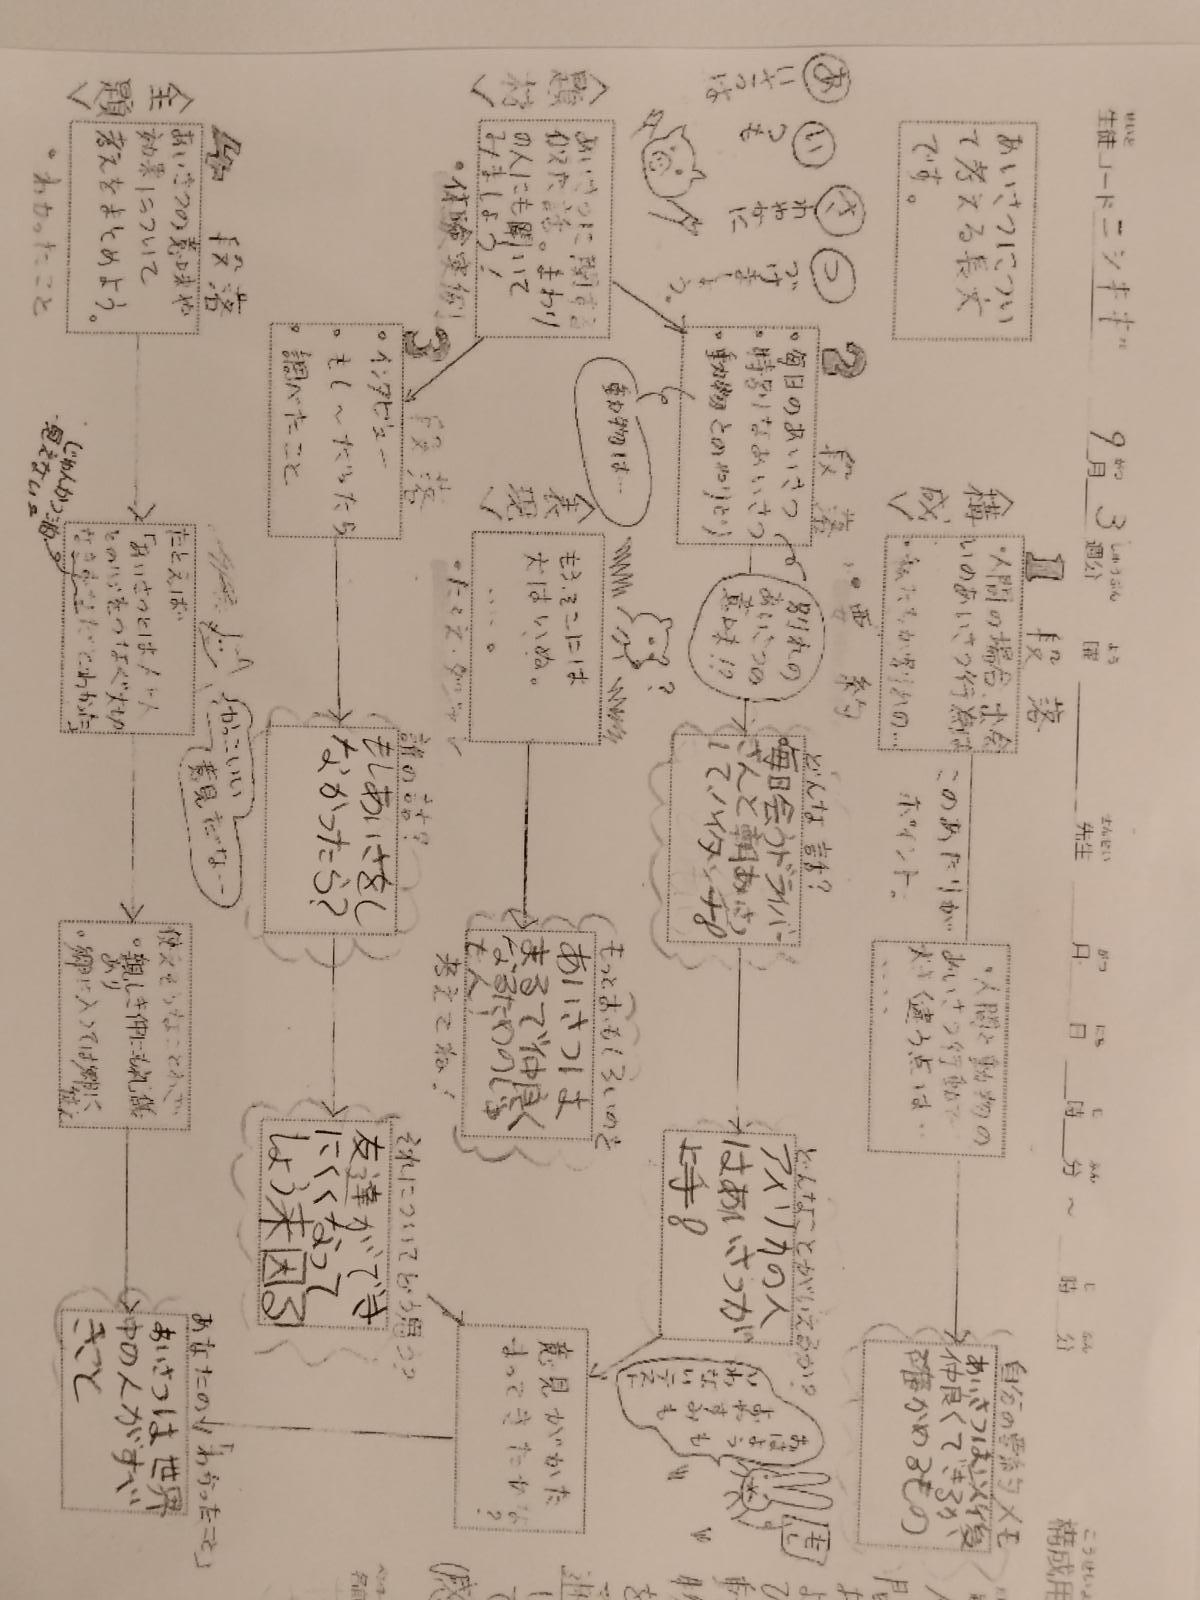 せいと
生徒コード ニシキギ
9月3週分
がつ
しゅうぶん
よう
曜
せんせい
先生
がつ にち じ ふん
月 日 時 分 ～ 時 分
こうせいよう
構成用
あいさつについ
て考える長文
です。
あいさつは
いつも
さわやかに
つづけましょう。
〈構成〉
1段落
・人間の場合、出会
いのあいさつ行為は
・私たちが別れの…
‥要約
このあたりが
ポイント。
・人間と動物の
あいさつ行動で
大きく違う点は‥
‥‥
自分の要約メモ
あいさつは以後
仲良くできるか、
確かめるもの
〈題材〉
あいさつに関する
似た話。まわり
の人にも聞いて
みましょう!
・体験実例
2段落
・毎日のあいさつ
・特別なあいさつ
・動物とのやりとり
動物は…
別れの
あいさつの
意味!?
どんな話?
毎日会うドライバー
さんと朝あいさつ
してハイタッチ。
どんなことがいえるか?
アメリカの人
はあいさつが
上手。
おはよう
も
おやすみも
いわないテスト
〈表現〉
もうそこには
犬はいぬ。
‥‥。
・たとえ・ダジャレ
もっとおもしろいのを
考えてね!
あいさつは
まるで仲良く
なるためのじゅ
もん
3段落
・インタビュー
・もし～だったら
・調べたこと
誰の話?
もしあいさつをし
なかったら?
それについてどう思う?
友達ができ
にくくなって
しょう来困る
意見がかた
まってきたかな
?
〈主題〉
4段落
あいさつの意味や
効果について
考えをまとめよう。
・わかったこと
じゅんかつ油。
見えない。
たとえば
「あいさつとは人と人
との心をつなぐ大切
なきずなだとわかった
かっこいい
意見だな～
使えそうなことわざ
・親しき仲にも礼儀
あり
・郷に入っては郷に
従え
あなたの「わかったこと」
あいさつは世界
中の人がすべ
きこと